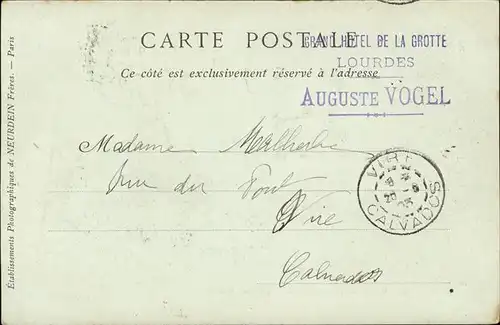 CARTE POSTALE
GRAND HOTEL DE LA GROTTE
LOURDES
Ce côté est exclusivement réservé à l'adresse
AUGUSTE VOGEL
Madame Malherbe
rue du Pont
Vire
Calvados
VIRE
20 -6
03
CALVADOS
Établissements Photographiques de NEURDEIN Frères. — Paris